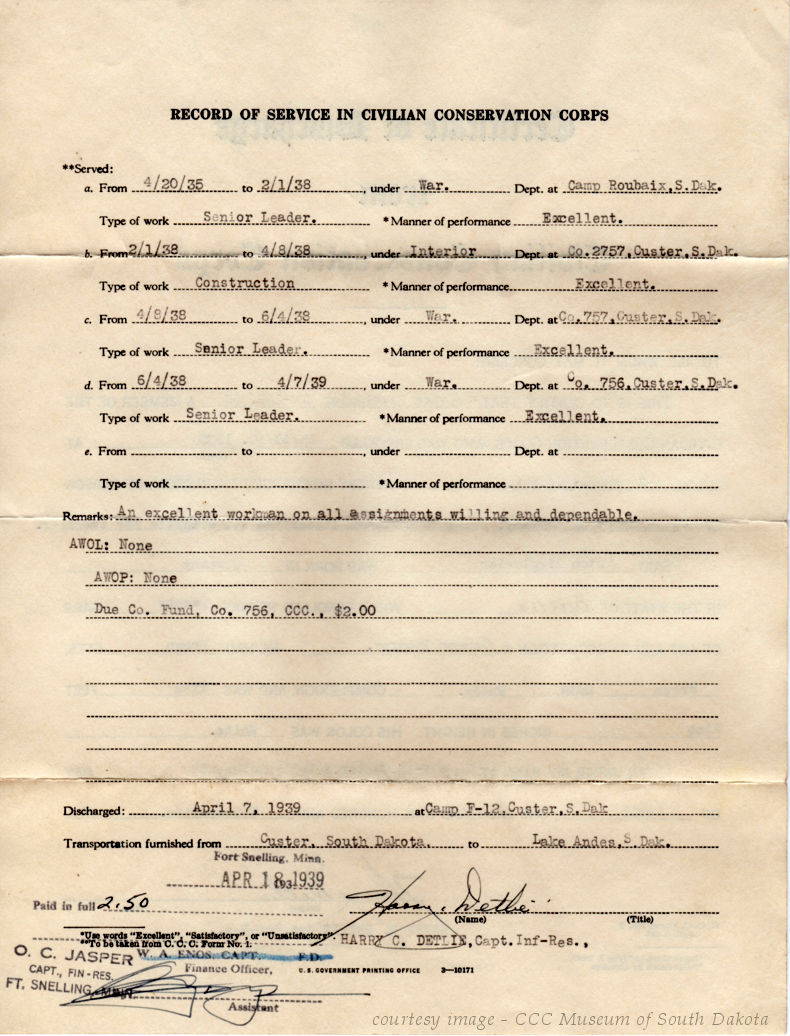 RECORD OF SERVICE IN CIVILIAN CONSERVATION CORPS
**Served:
a. From 4/20/35 to 2/1/38, under War. Dept. at Camp Roubaix,S.Dak.
Type of work Senior Leader. *Manner of performance Excellent.
b. From 2/1/38 to 4/8/38, under Interior Dept. at Co.2757,Custer,S.Dak.
Type of work Construction *Manner of performance Excellent.
c. From 4/8/38 to 6/4/38, under War. Dept. at Co.757,Custer,S.Dak.
Type of work Senior Leader. *Manner of performance Excellent.
d. From 6/4/38 to 4/7/39, under War. Dept. at Co. 756,Custer,S.Dak.
Type of work Senior Leader. *Manner of performance Excellent.
e. From to , under Dept. at
Type of work *Manner of performance
Remarks: An excellent workman on all assignments willing and dependable.
AWOL: None
AWOP: None
Due Co. Fund, Co. 756, CCC., $2.00
Discharged: April 7, 1939 at Camp F-12,Custer,S.Dak
Transportation furnished from Custer, South Dakota. to Lake Andes,S.Dak.
Fort Snelling, Minn.
APR 18 1939
Paid in full 2.50 Harry C. Detlie
(Name) (Title)
*Use words "Excellent", "Satisfactory", or "Unsatisfactory".
**To be taken from C. C. C. Form No. 1.
HARRY C. DETLIE,Capt.Inf-Res.,
O. C. JASPER W. A. ENOS, CAPT. F.D.
CAPT., FIN-RES. Finance Officer, U. S. GOVERNMENT PRINTING OFFICE 3—10171
FT. SNELLING, MINN.
Assistant
courtesy image - CCC Museum of South Dakota